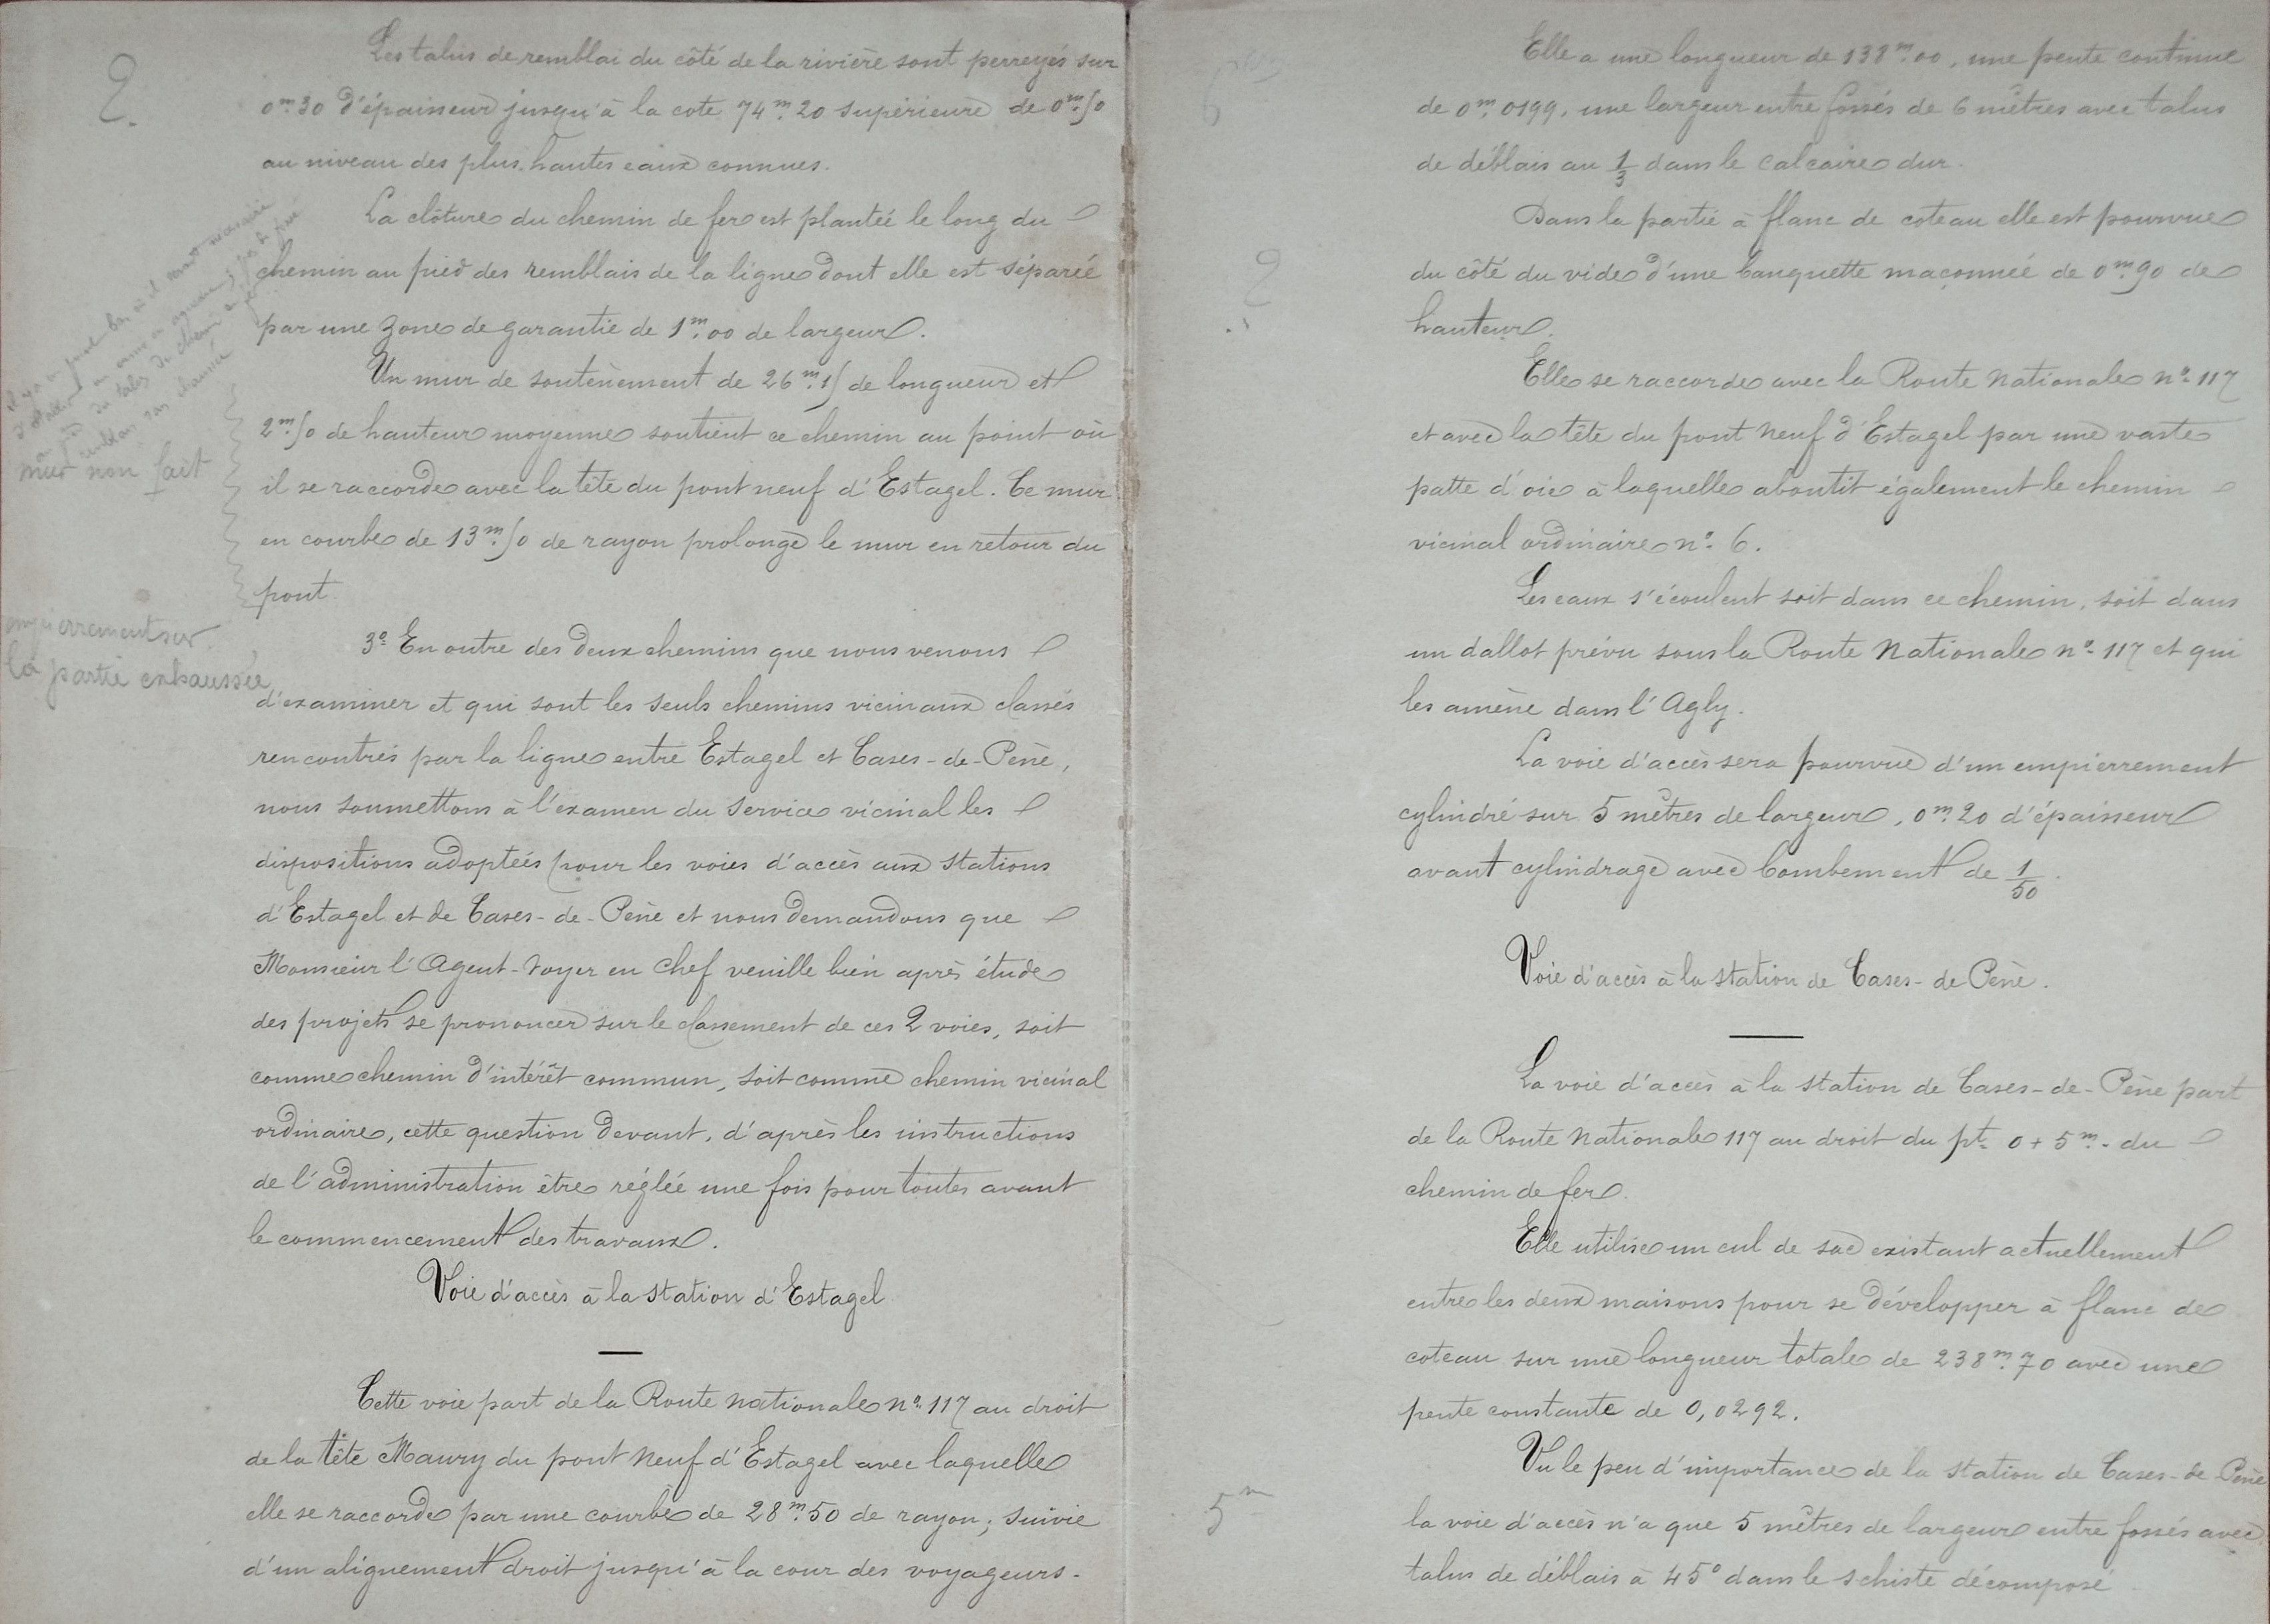 2.
Les talus de remblai du côté de la rivière sont perreyés sur
0m.30 d'épaisseur jusqu'à la cote 74m.20 supérieure de 0m.50
au niveau des plus hautes eaux connues.
La clôture du chemin de fer est plantée le long du
chemin au pied des remblais de la ligne dont elle est séparée
par une zone de garantie de 1m.00 de largeur.
Un mur de soutènement de 26m.15 de longueur et
2m.50 de hauteur moyenne soutient ce chemin au point où
mur non fait
il se raccorde avec la tête du pont neuf d'Estagel. Ce mur
en courbe de 13m.50 de rayon prolonge le mur en retour du
pont
empierrement sur
la partie exhaussée
3º En outre des deux chemins que nous venons
d'examiner et qui sont les seuls chemins vicinaux classés
rencontrés par la ligne entre Estagel et Cases-de-Pène,
nous soumettons à l'examen du service vicinal les
dispositions adoptées pour les voies d'accès aux stations
d'Estagel et de Cases-de-Pène et nous demandons que
Monsieur l'Agent-Voyer en Chef veuille bien après étude
des projets se prononcer sur le classement de ces 2 voies, soit
comme chemin d'intérêt commun, soit comme chemin vicinal
ordinaire, cette question devant, d'après les instructions
de l'administration être réglée une fois pour toutes avant
le commencement des travaux.
Voie d'accès à la station d'Estagel
Cette voie part de la Route nationale nº 117 au droit
de la tête Maury du pont neuf d'Estagel avec laquelle
elle se raccorde par une courbe de 28m.50 de rayon; suivie
d'un alignement droit jusqu'à la cour des voyageurs.
Elle a une longueur de 138m.00, une pente continue
de 0m.0199, une largeur entre fossés de 6 mètres avec talus
de déblais au 1/3 dans le calcaire dur.
Dans la partie à flanc de coteau elle est pourvue
?
du côté du vide d'une banquette maçonnée de 0m.90 de
hauteur.
Elle se raccorde avec la Route Nationale nº 117
et avec la tête du pont neuf d'Estagel par une vaste
patte d'oie à laquelle aboutit également le chemin
vicinal ordinaire nº 6.
Les eaux s'écoulent soit dans ce chemin, soit dans
un dallot prévu sous la Route Nationale nº 117 et qui
les amène dans l'Agly.
La voie d'accès sera pourvue d'un empierrement
cylindré sur 5 mètres de largeur, 0m.20 d'épaisseur
avant cylindrage avec bombement de 1/50.
Voie d'accès à la station de Cases-de Pène.
La voie d'accès à la station de Cases-de-Pène part
de la Route Nationale 117 au droit du pt. 0 + 5m. du
chemin de fer.
Elle utilise un cul de sac existant actuellement
entre les deux maisons pour se développer à flanc de
coteau sur une longueur totale de 238m.70 avec une
pente constante de 0,0292.
Vu le peu d'importance de la station de Cases-de Pène
5m
la voie d'accès n'a que 5 mètres de largeur entre fossés avec
talus de déblais à 45º dans le schiste décomposé